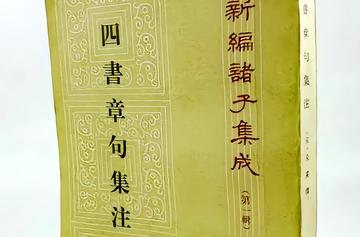 新編諸子集成
（第一輯）
四書章句集注
書章句集注